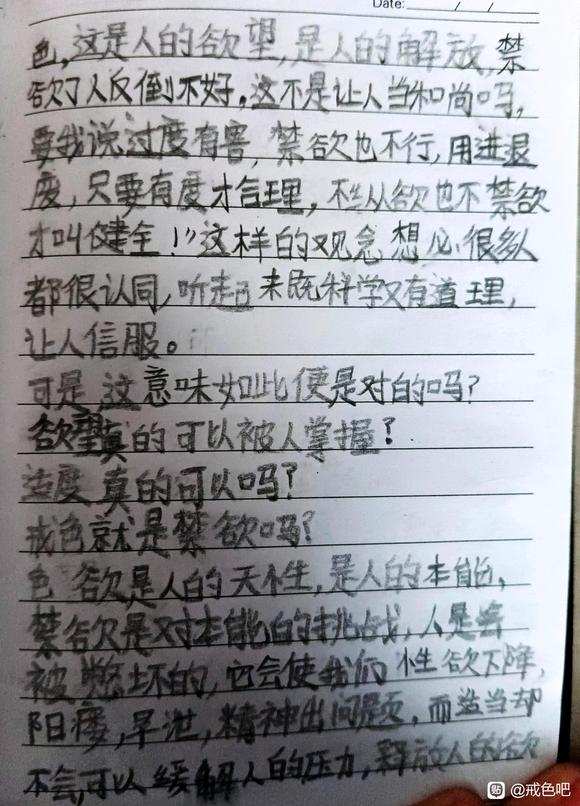 Date: / /
色,这是人的欲望,是人的解放,禁
欲了人反倒不好。这不是让人当和尚吗,
要我说过度有害,禁欲也不行,用进退
废,只要有度才合理,不纵欲也不禁欲
才叫健全!”这样的观念想必很多人
都很认同,听起来既科学又有道理,
让人信服。
可是,这意味如此便是对的吗?
欲望真的可以被人掌握?
适度真的可以吗?
戒色就是禁欲吗?
色欲是人的天性,是人的本能,
禁欲是对本能的挑战,人是会
被憋坏的,它会使我们性欲下降,
阳痿,早泄,精神出问题,而适当却
不会,可以缓解人的压力,释放人的欲
贴 @戒色吧